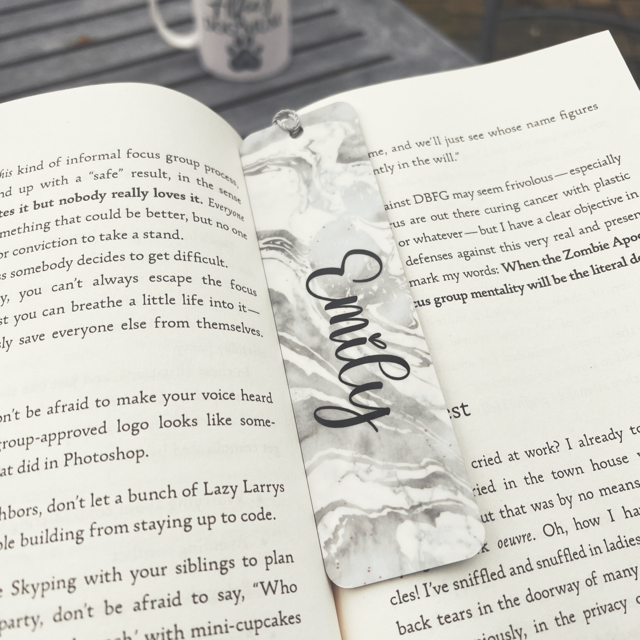 this kind of informal focus group process,
nd up with a “safe” result, in the sense
tes it but nobody really loves it. Everyone
mething that could be better, but no one
or conviction to take a stand.
s somebody decides to get difficult.
y, you can't always escape the focus
st you can breathe a little life into it—
ly save everyone else from themselves.
on't be afraid to make your voice heard
group-approved logo looks like some-
at did in Photoshop.
hbors, don't let a bunch of Lazy Larrys
le building from staying up to code.
e Skyping with your siblings to plan
party, don't be afraid to say, “Who
with mini-cupcakes
Emily
me, and we'll just see whose name figures
ntly in the will.”
ainst DBFG may seem frivolous—especially
us are out there curing cancer with plastic
or whatever—but I have a clear objective in
defenses against this very real and present
mark my words: When the Zombie Apoc
cus group mentality will be the literal de
est
cried at work? I already to
ried in the town house w
ut that was by no means
k oeuvre. Oh, how I ha
cles! I've sniffled and snuffled in ladies
back tears in the doorway of many
iously, in the privacy o